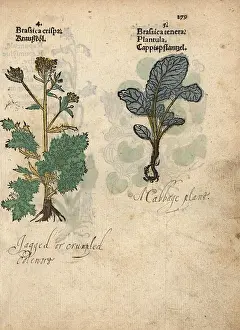 179
4.
Brassica crispa.
Krausköl.
5.
Brassica tenera.
Plantula.
Cappißpflantzel.
A Cabbage plant.
Jagged or crumpled